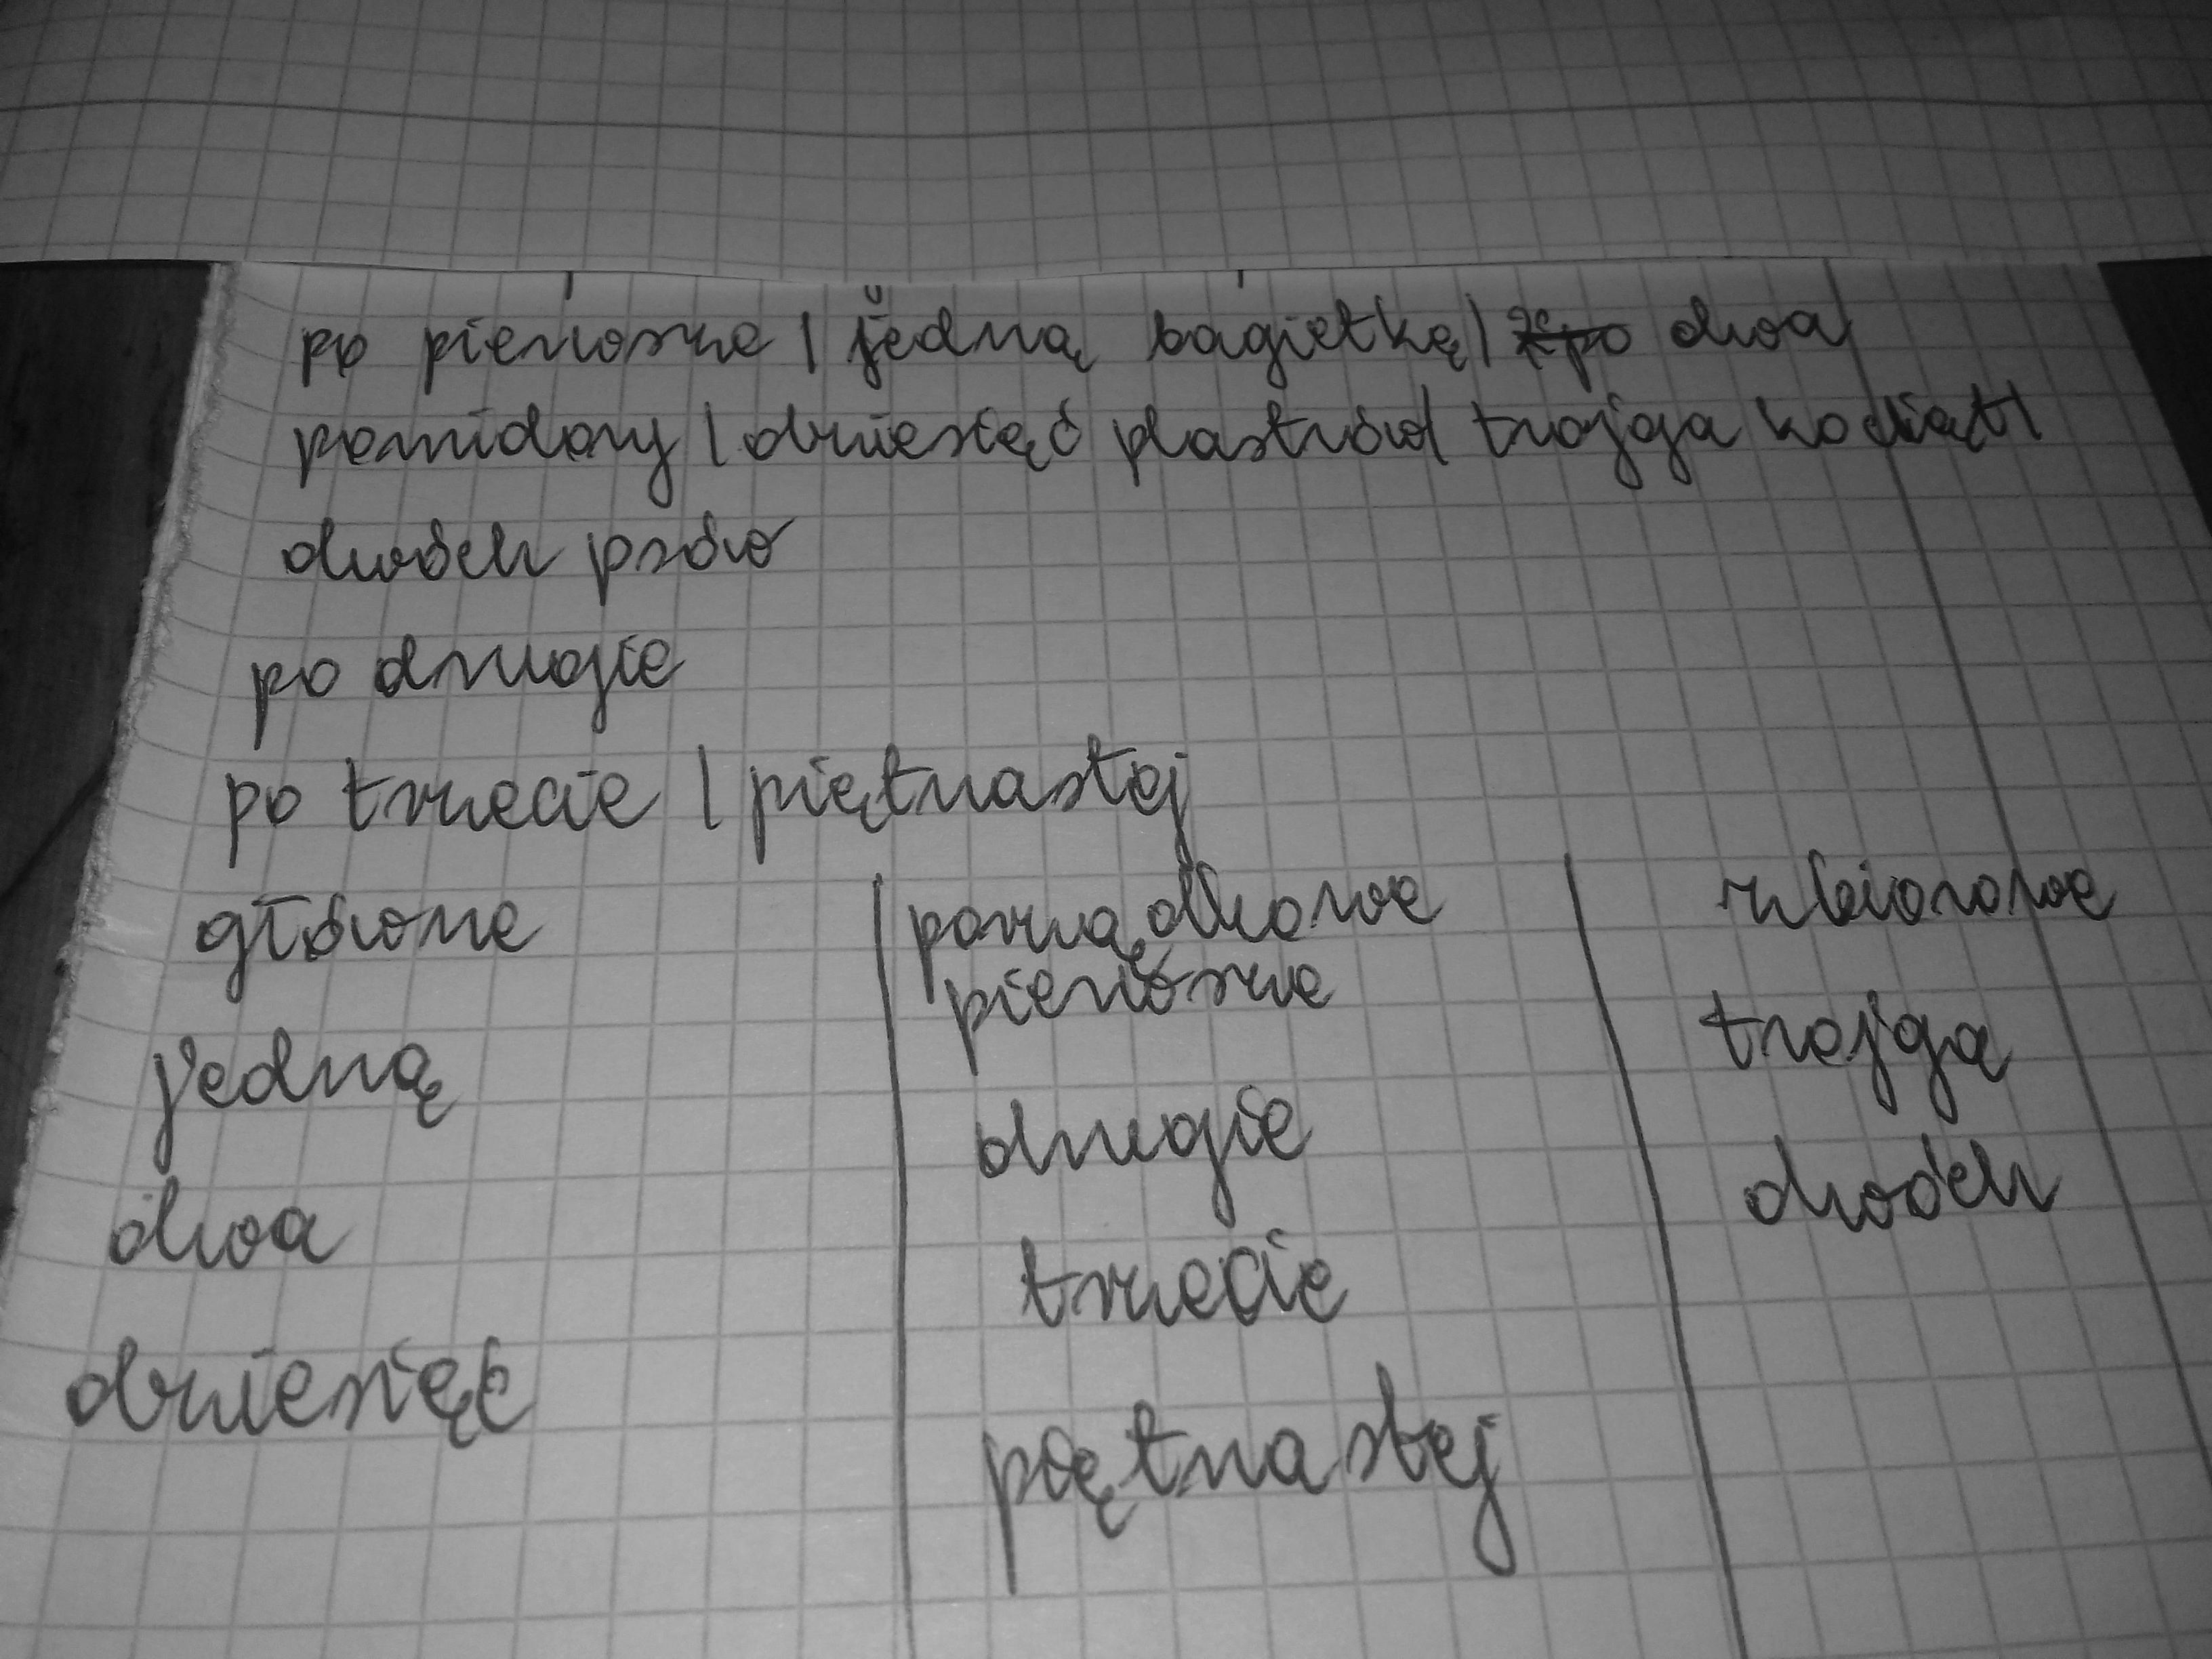 po pierwsze | jedną bagietkę | dwa
pomidory | dziesięć plastrów | trojga kociąt |
dwóch psów
po drugie
po trzecie | piętnastej
główne | porządkowe | zbiorowe
pierwsze
jedną | drugie | trojga
dwa | trzecie | dwóch
dziesięć | piętnastej